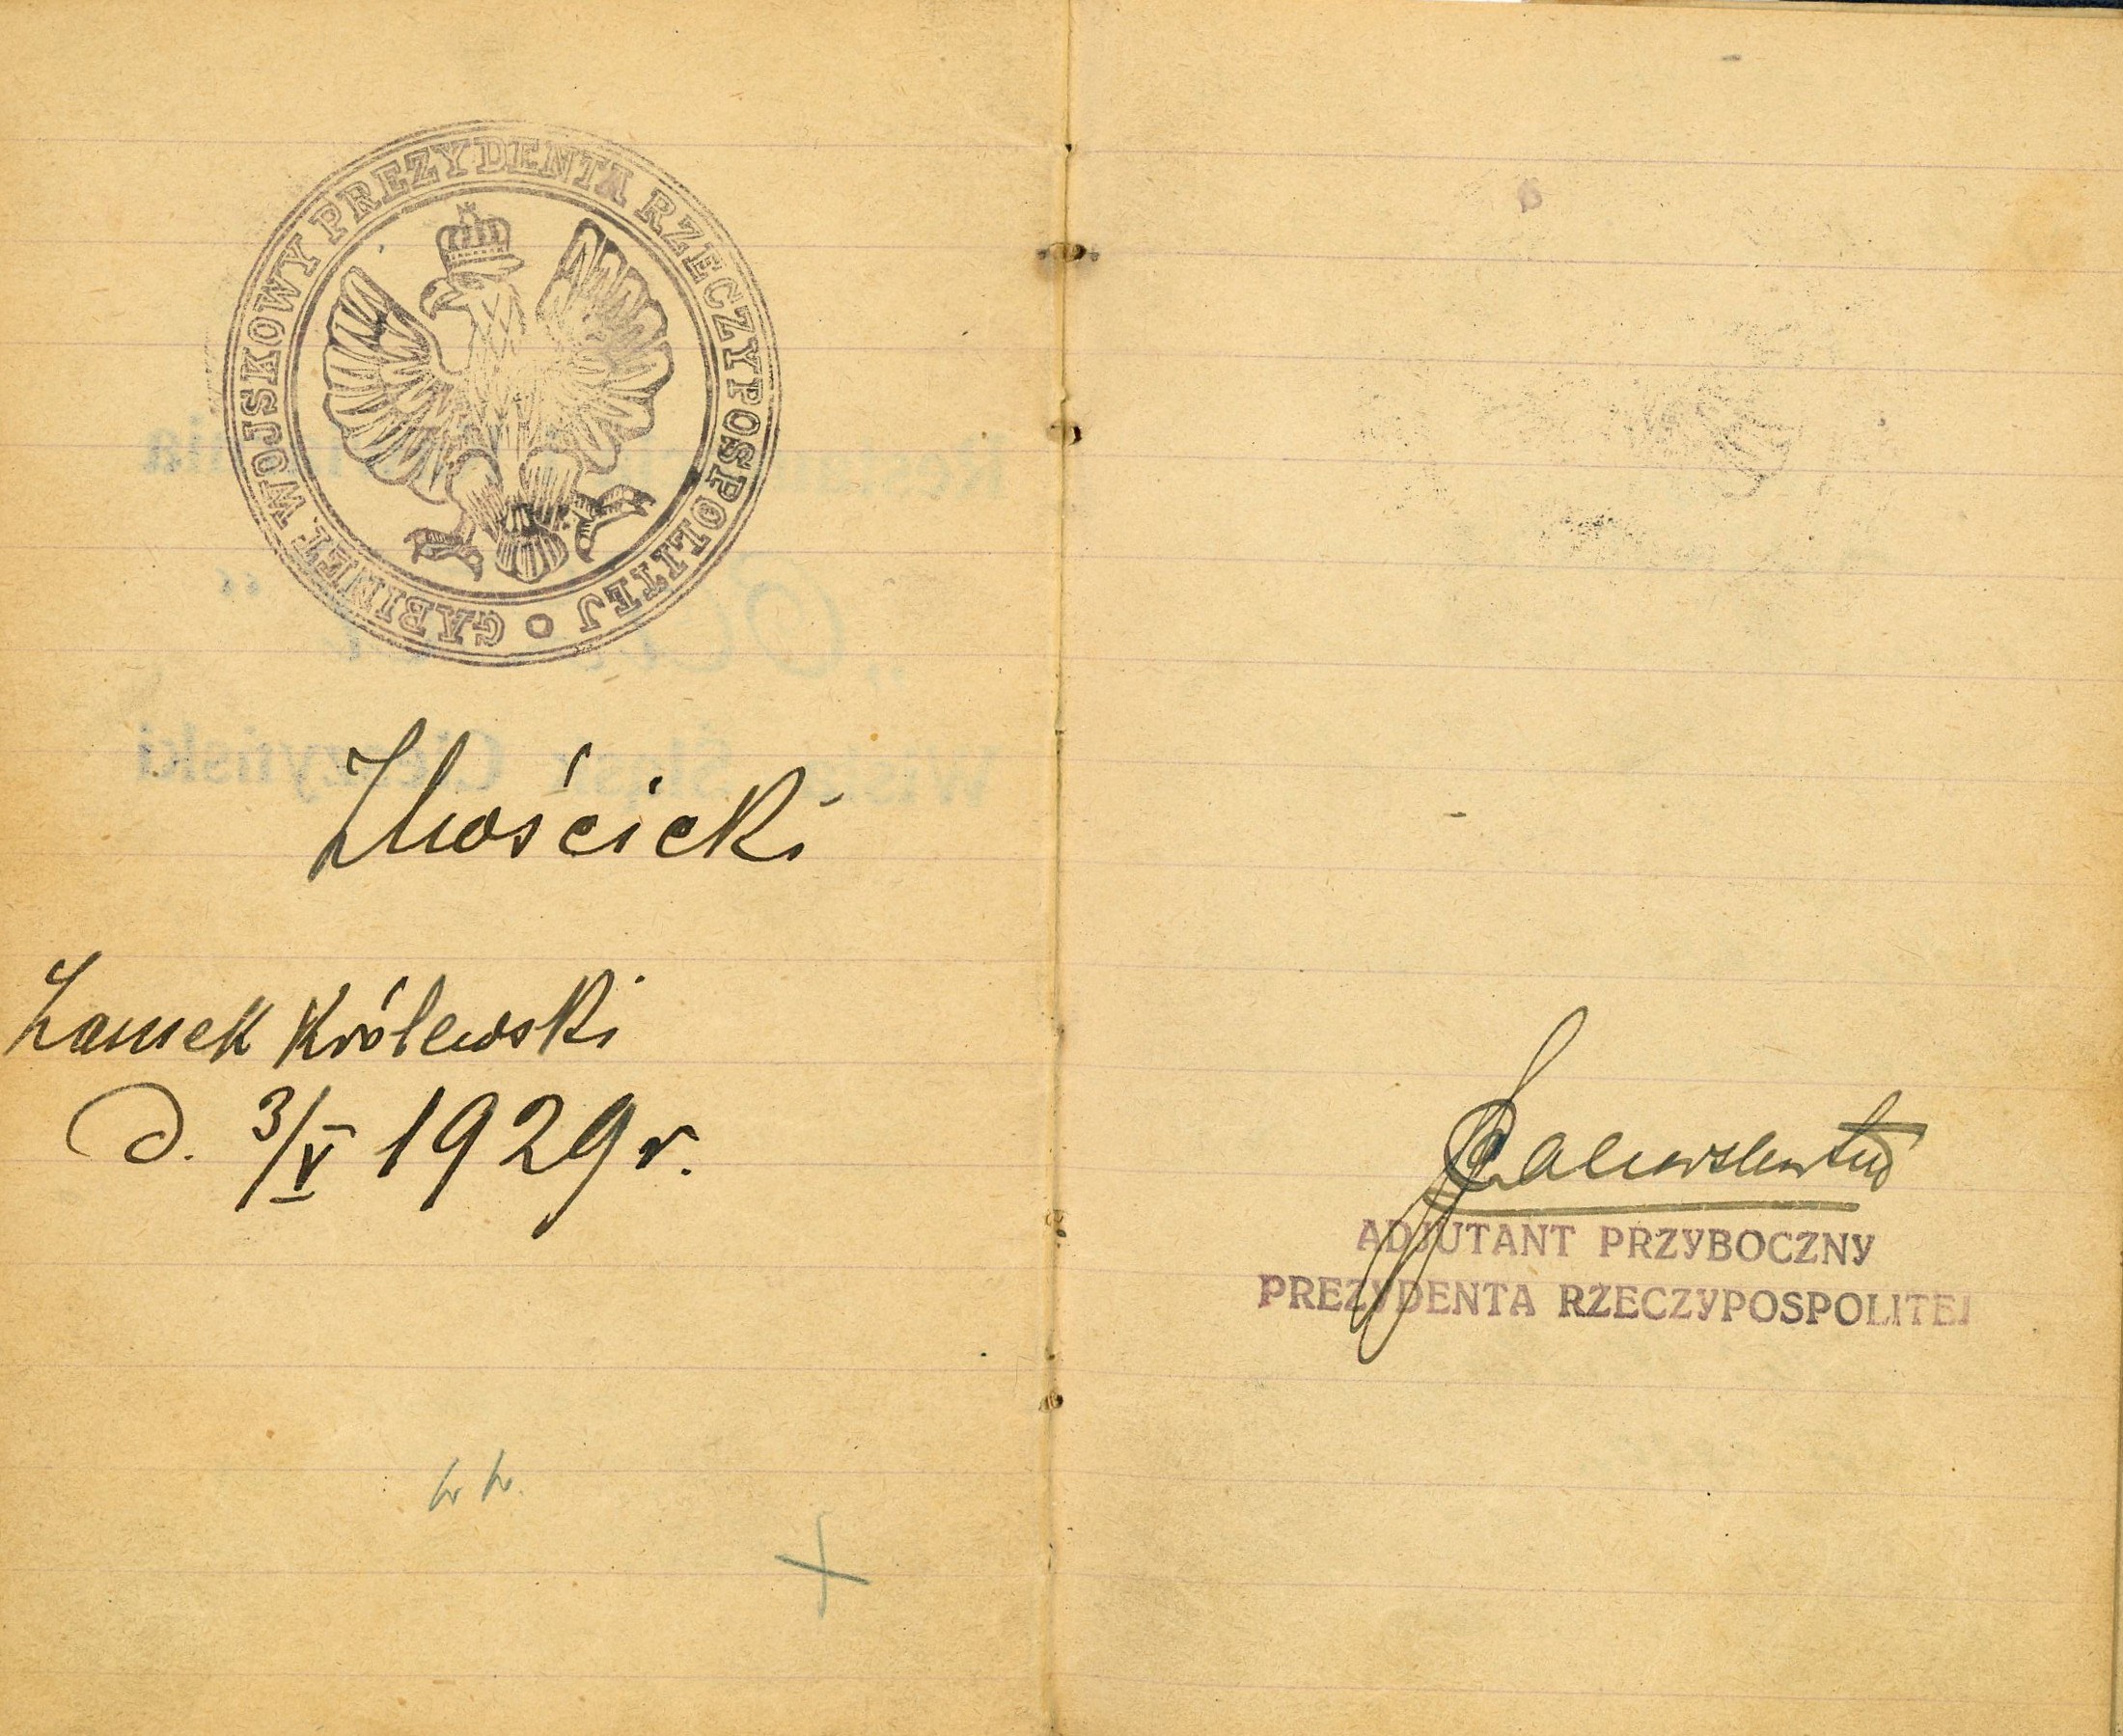 GABINET WOJSKOWY PREZYDENTA RZECZYPOSPOLITEJ
IMościcki
Zamek Królewski
D. 3/V 1929 r.
ADJUTANT PRZYBOCZNY
PREZYDENTA RZECZYPOSPOLITEJ